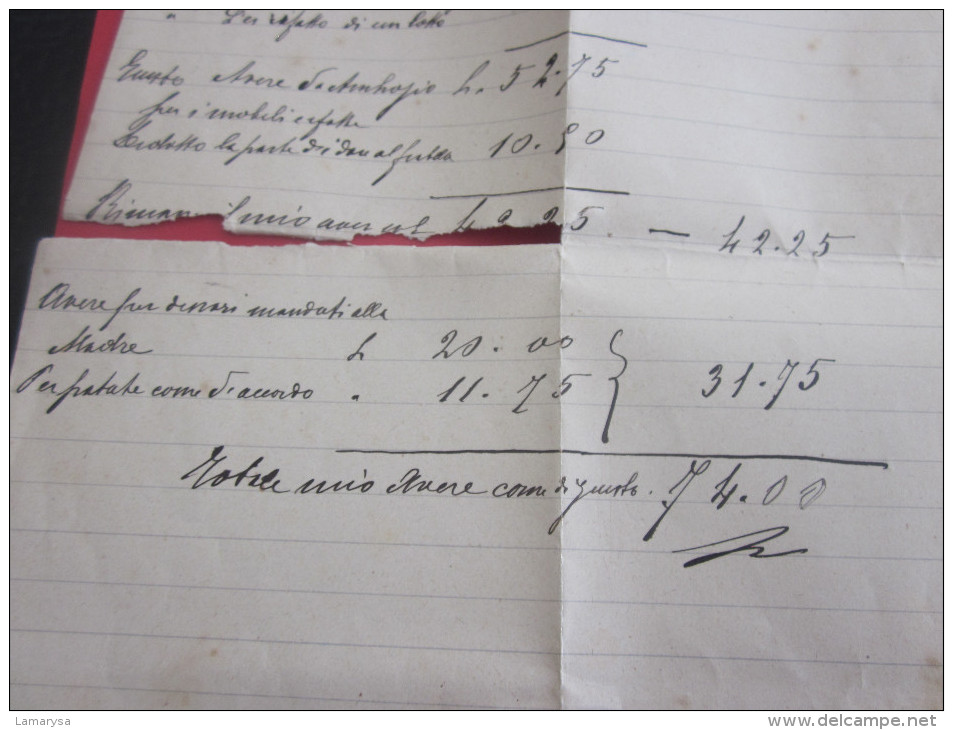 " Per rifatto di un letto
Avere L. 52.75
per i mobili e fatte
la parte di 10.50
il mio avere L. 42.25. — 42.25
Avere per denari mandati alla
Madre L 20.00
Per patate come d'accordo " 11.75 31.75
Totale mio Avere come di questo. 74.00
Lamarysa
www.delcampe.net